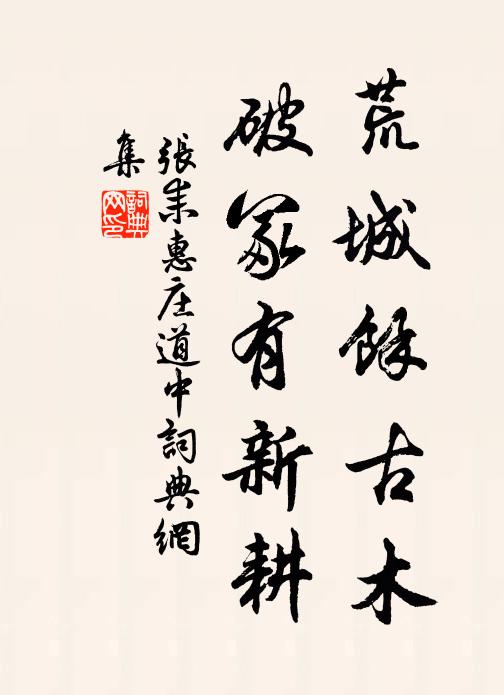 荒城餘古木
破冢有新耕
張耒惠庄道中詞典網
集
詞典
网印